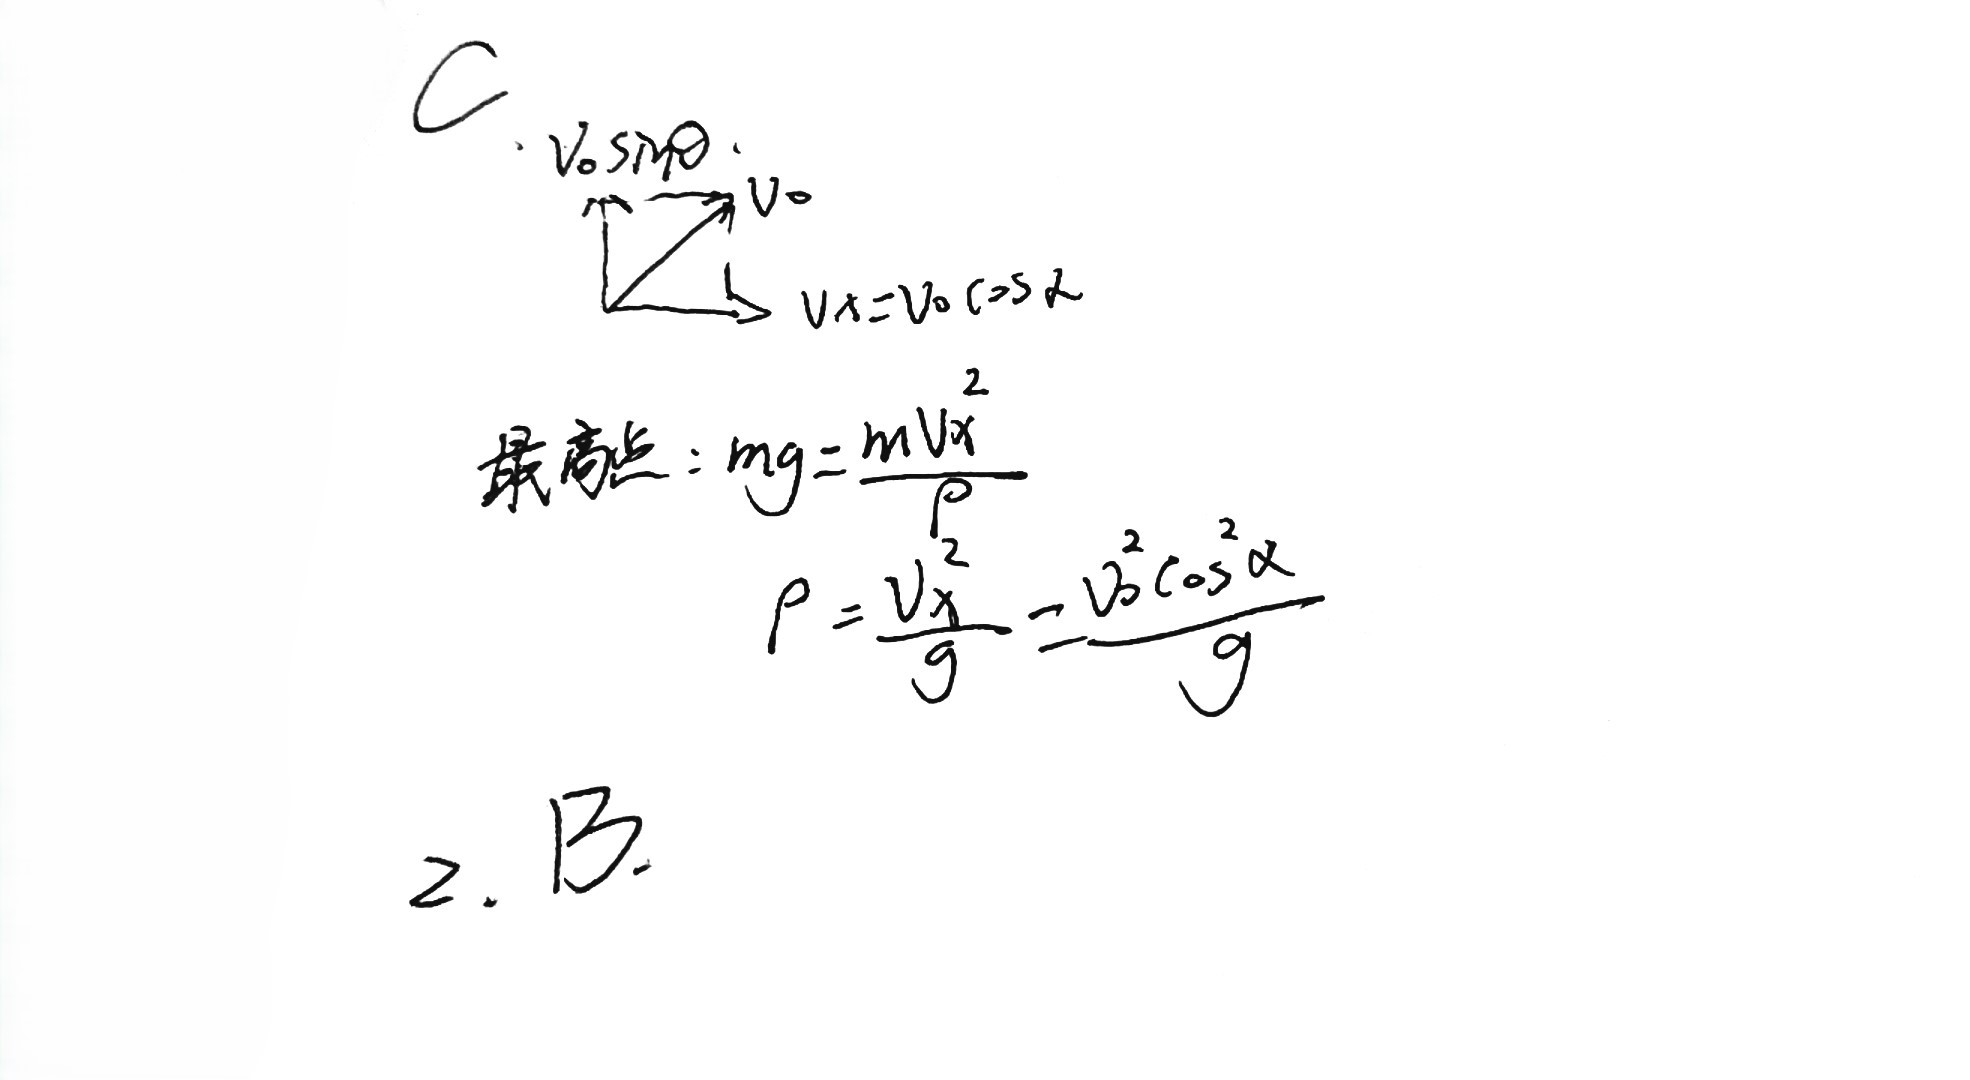 C
V₀sinθ
V₀
Vx=V₀cosα
最高点:mg=mVx²/ρ
ρ=Vx²/g=V₀²cos²α/g
2. B.